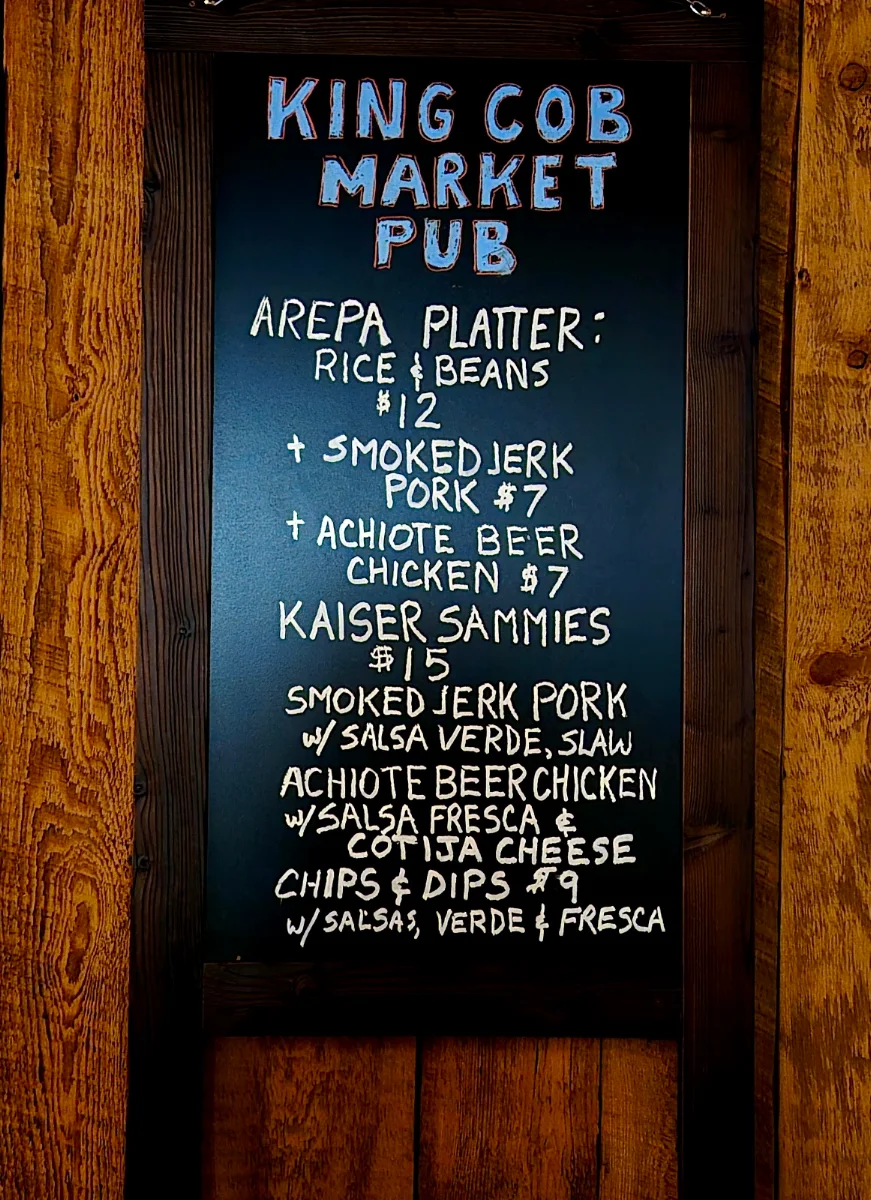 KING COB
MARKET
PUB
AREPA PLATTER:
RICE & BEANS
$12
+ SMOKED JERK
PORK $7
+ ACHIOTE BEER
CHICKEN $7
KAISER SAMMIES
$15
SMOKED JERK PORK
w/ SALSA VERDE, SLAW
ACHIOTE BEER CHICKEN
w/ SALSA FRESCA &
COTIJA CHEESE
CHIPS & DIPS $9
w/ SALSAS, VERDE & FRESCA